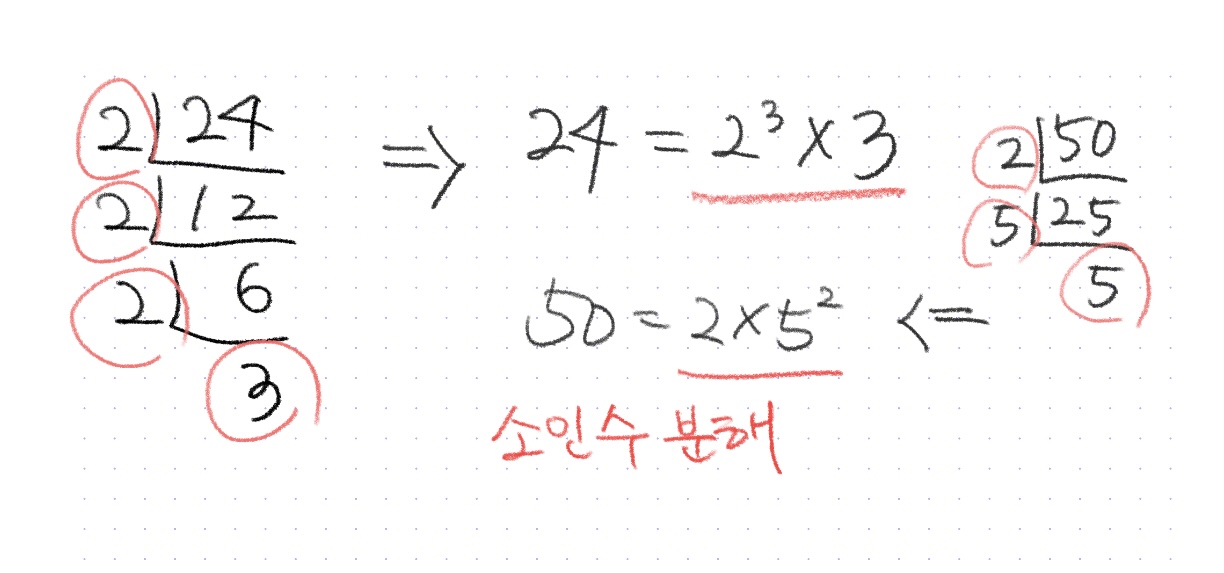 2 24
2 12
2 6
3
⇒ 24 = 2³ × 3
2 50
5 25
5
50 = 2 × 5² <=
소인수 분해